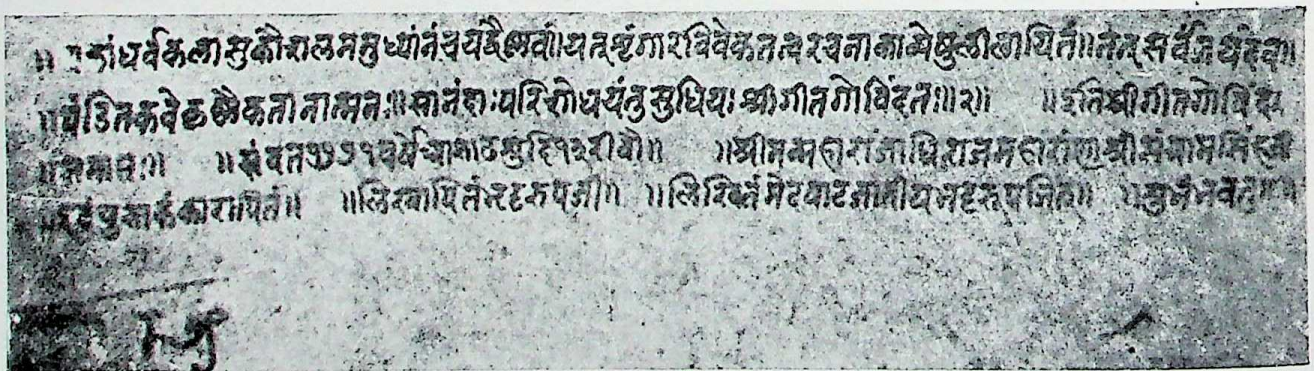 ॥ गांधर्वकलासुकौशलमनुध्यानंचयद्वैष्णवं॥यत्शृंगारविवेकतत्वरचनाकाव्येषुलीलायितं॥तत्सर्वंजयदेव
पंडितकवेकृष्णैकतानात्मनः॥सानंदाःपरिशोधयंतुसुधियःश्रीगीतगोविंदतः॥२॥ ॥इतिश्रीगीतगोविंद
समाप्तः॥ ॥संवत१७७१वर्षे शुदि१२ ॥ ॥श्रीमन्महाराजाधिराजमहाराणाश्रीसंग्रामसिंहजी
पुस्तकं कारापितं॥ ॥लिखापितंभट्टरुपजी॥ ॥लिखितंमेदपाटज्ञातीयभट्टरूपजित॥ ॥शुभंभवतु